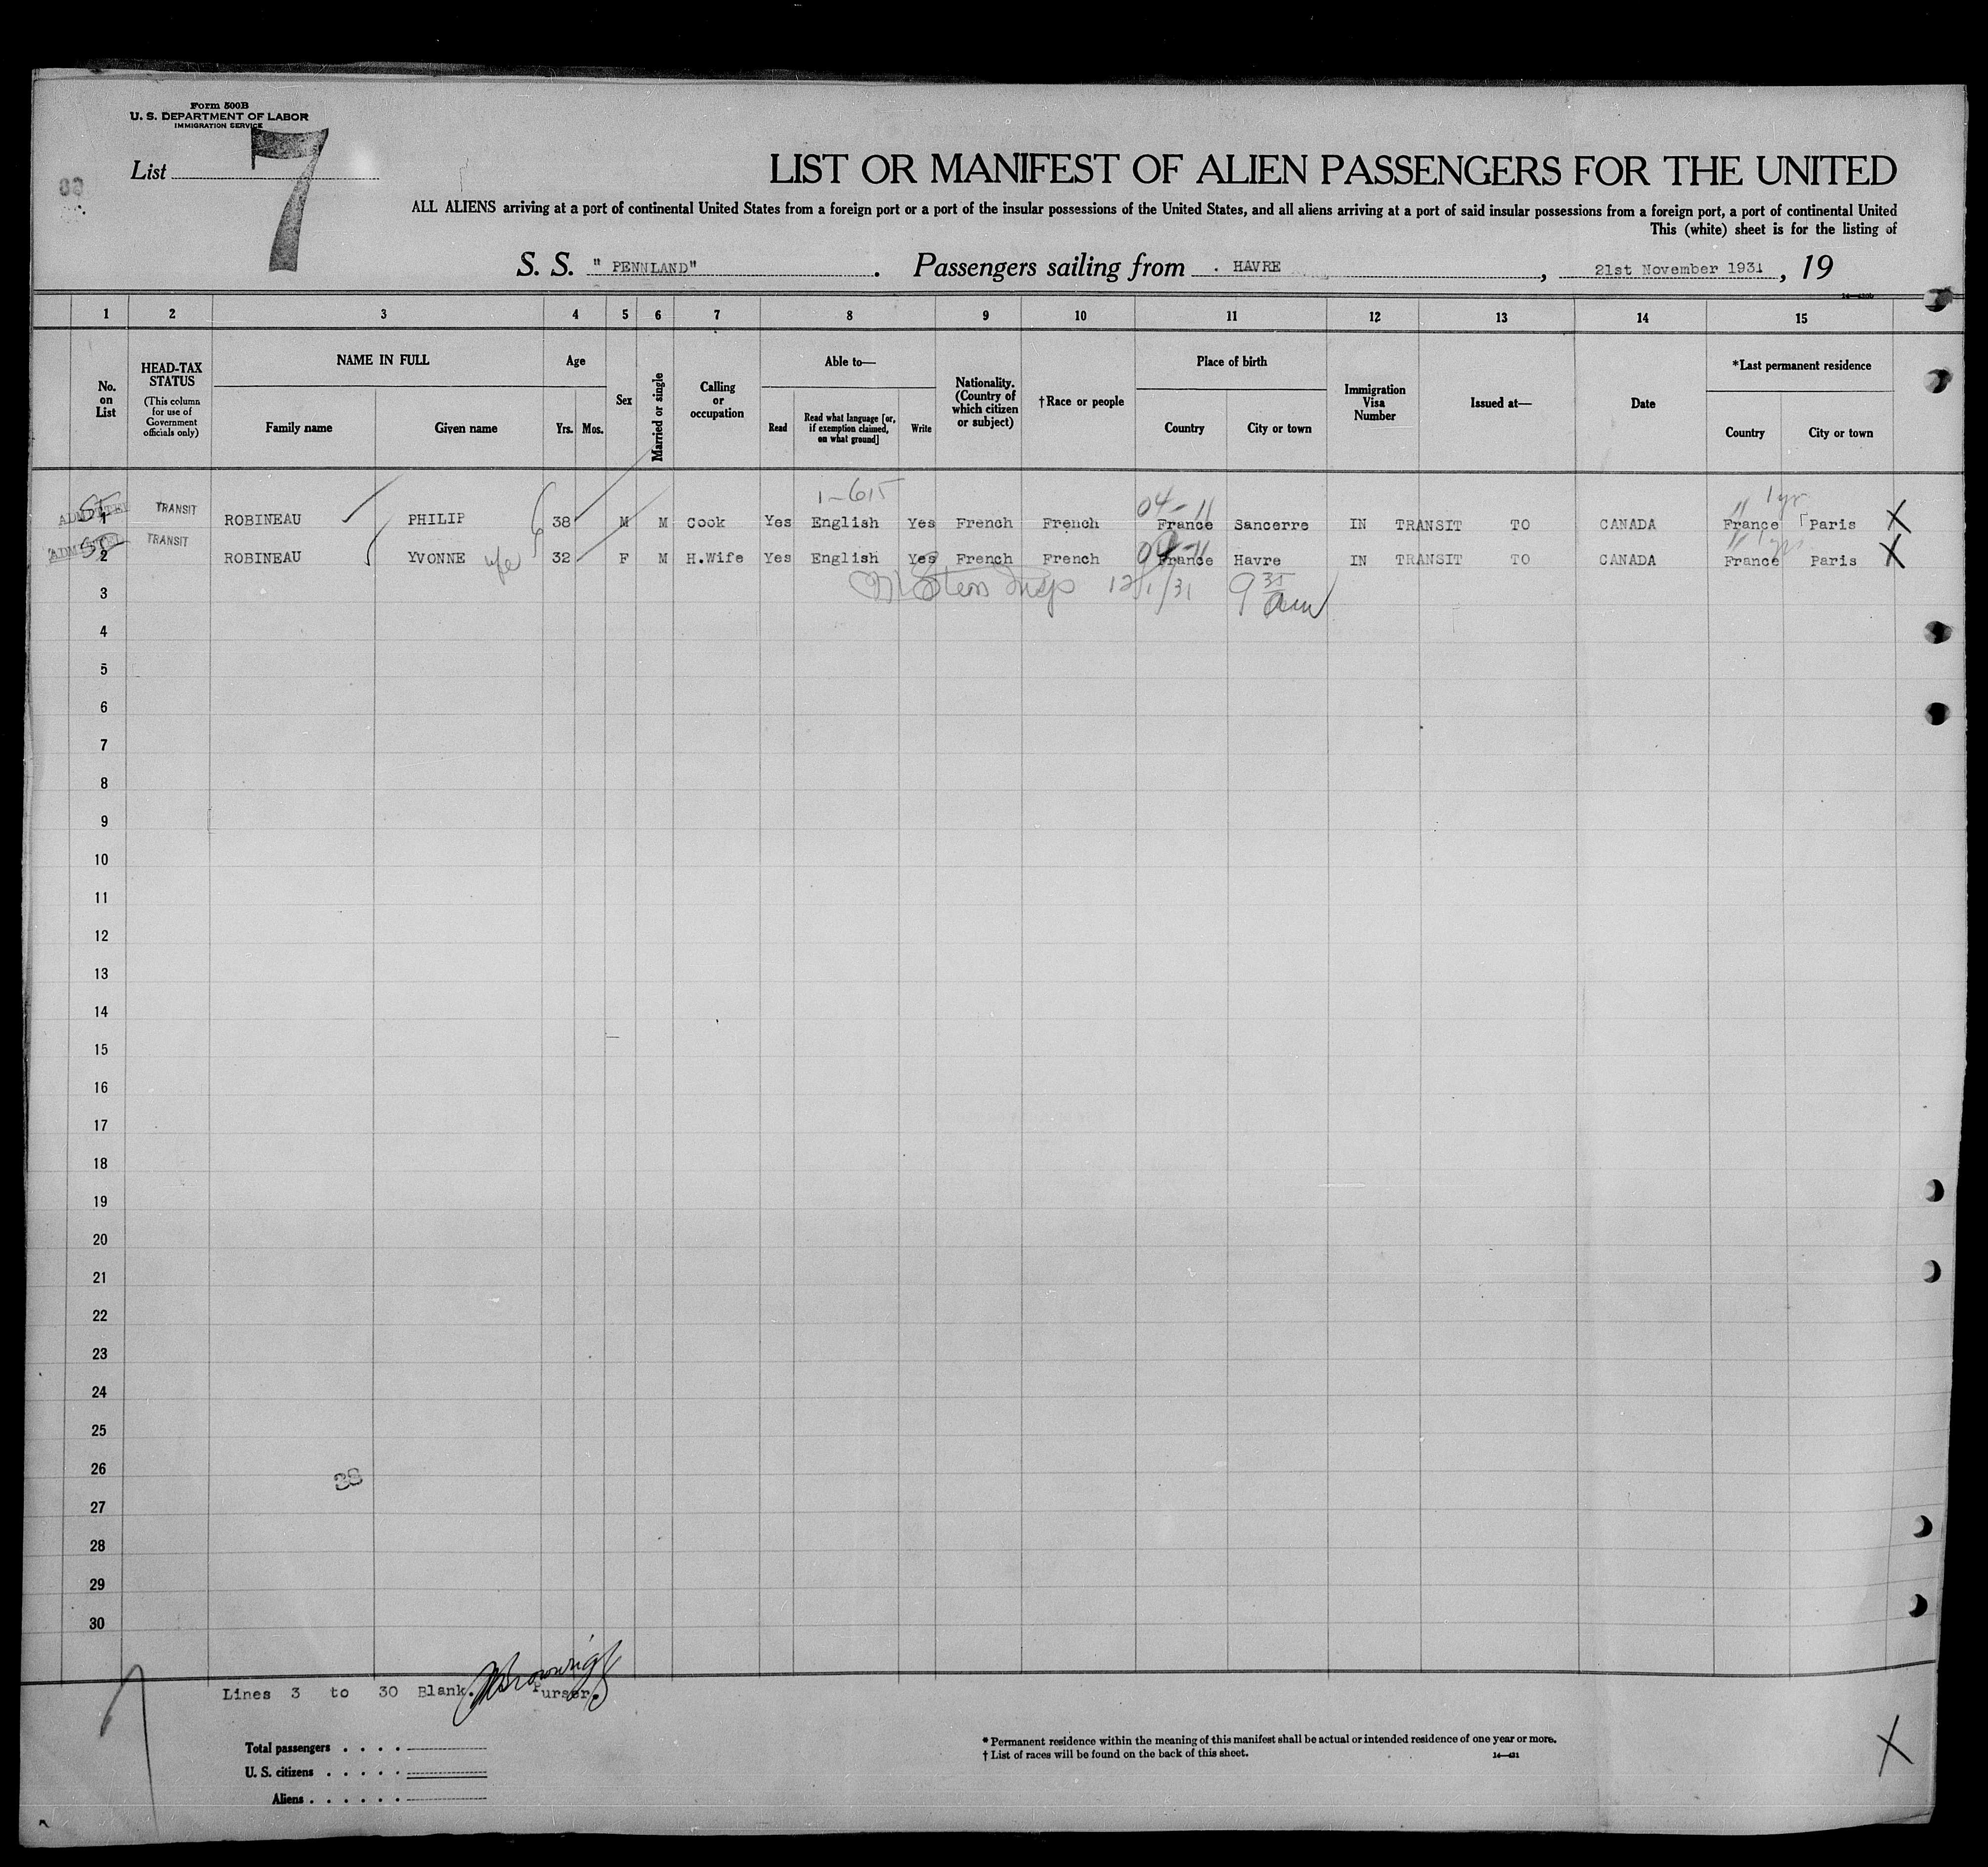 Form 500B
U. S. DEPARTMENT OF LABOR
IMMIGRATION SERVICE
List 7
LIST OR MANIFEST OF ALIEN PASSENGERS FOR THE UNITED
ALL ALIENS arriving at a port of continental United States from a foreign port or a port of the insular possessions of the United States, and all aliens arriving at a port of said insular possessions from a foreign port, a port of continental United
This (white) sheet is for the listing of
S. S. " PENNLAND" . Passengers sailing from . HAVRE , 21st November 1931 , 19
1 2 3 4 5 6 7 8 9 10 11 12 13 14 15
No. on List
HEAD-TAX STATUS (This column for use of Government officials only)
NAME IN FULL
Family name Given name
Age
Yrs. Mos.
Sex
Married or single
Calling or occupation
Able to—
Read
Read what language [or, if exemption claimed, on what ground]
Write
Nationality. (Country of which citizen or subject)
†Race or people
Place of birth
Country City or town
Immigration Visa Number
Issued at—
Date
*Last permanent residence
Country City or town
1-615 04-11 1 yr
1 TRANSIT ROBINEAU PHILIP 38 M M Cook Yes English Yes French French France Sancerre IN TRANSIT TO CANADA France Paris X
2 TRANSIT ROBINEAU YVONNE 32 F M H.Wife Yes English Yes French French France Havre IN TRANSIT TO CANADA France Paris X
3 12/1/31 9 35 am
4
5
6
7
8
9
10
11
12
13
14
15
16
17
18
19
20
21
22
23
24
25
26
27
28
29
30
Lines 3 to 30 Blank. Purser.
Total passengers . . . .
U. S. citizens . . . . .
Aliens . . . . . .
* Permanent residence within the meaning of this manifest shall be actual or intended residence of one year or more.
† List of races will be found on the back of this sheet.
14—421
X